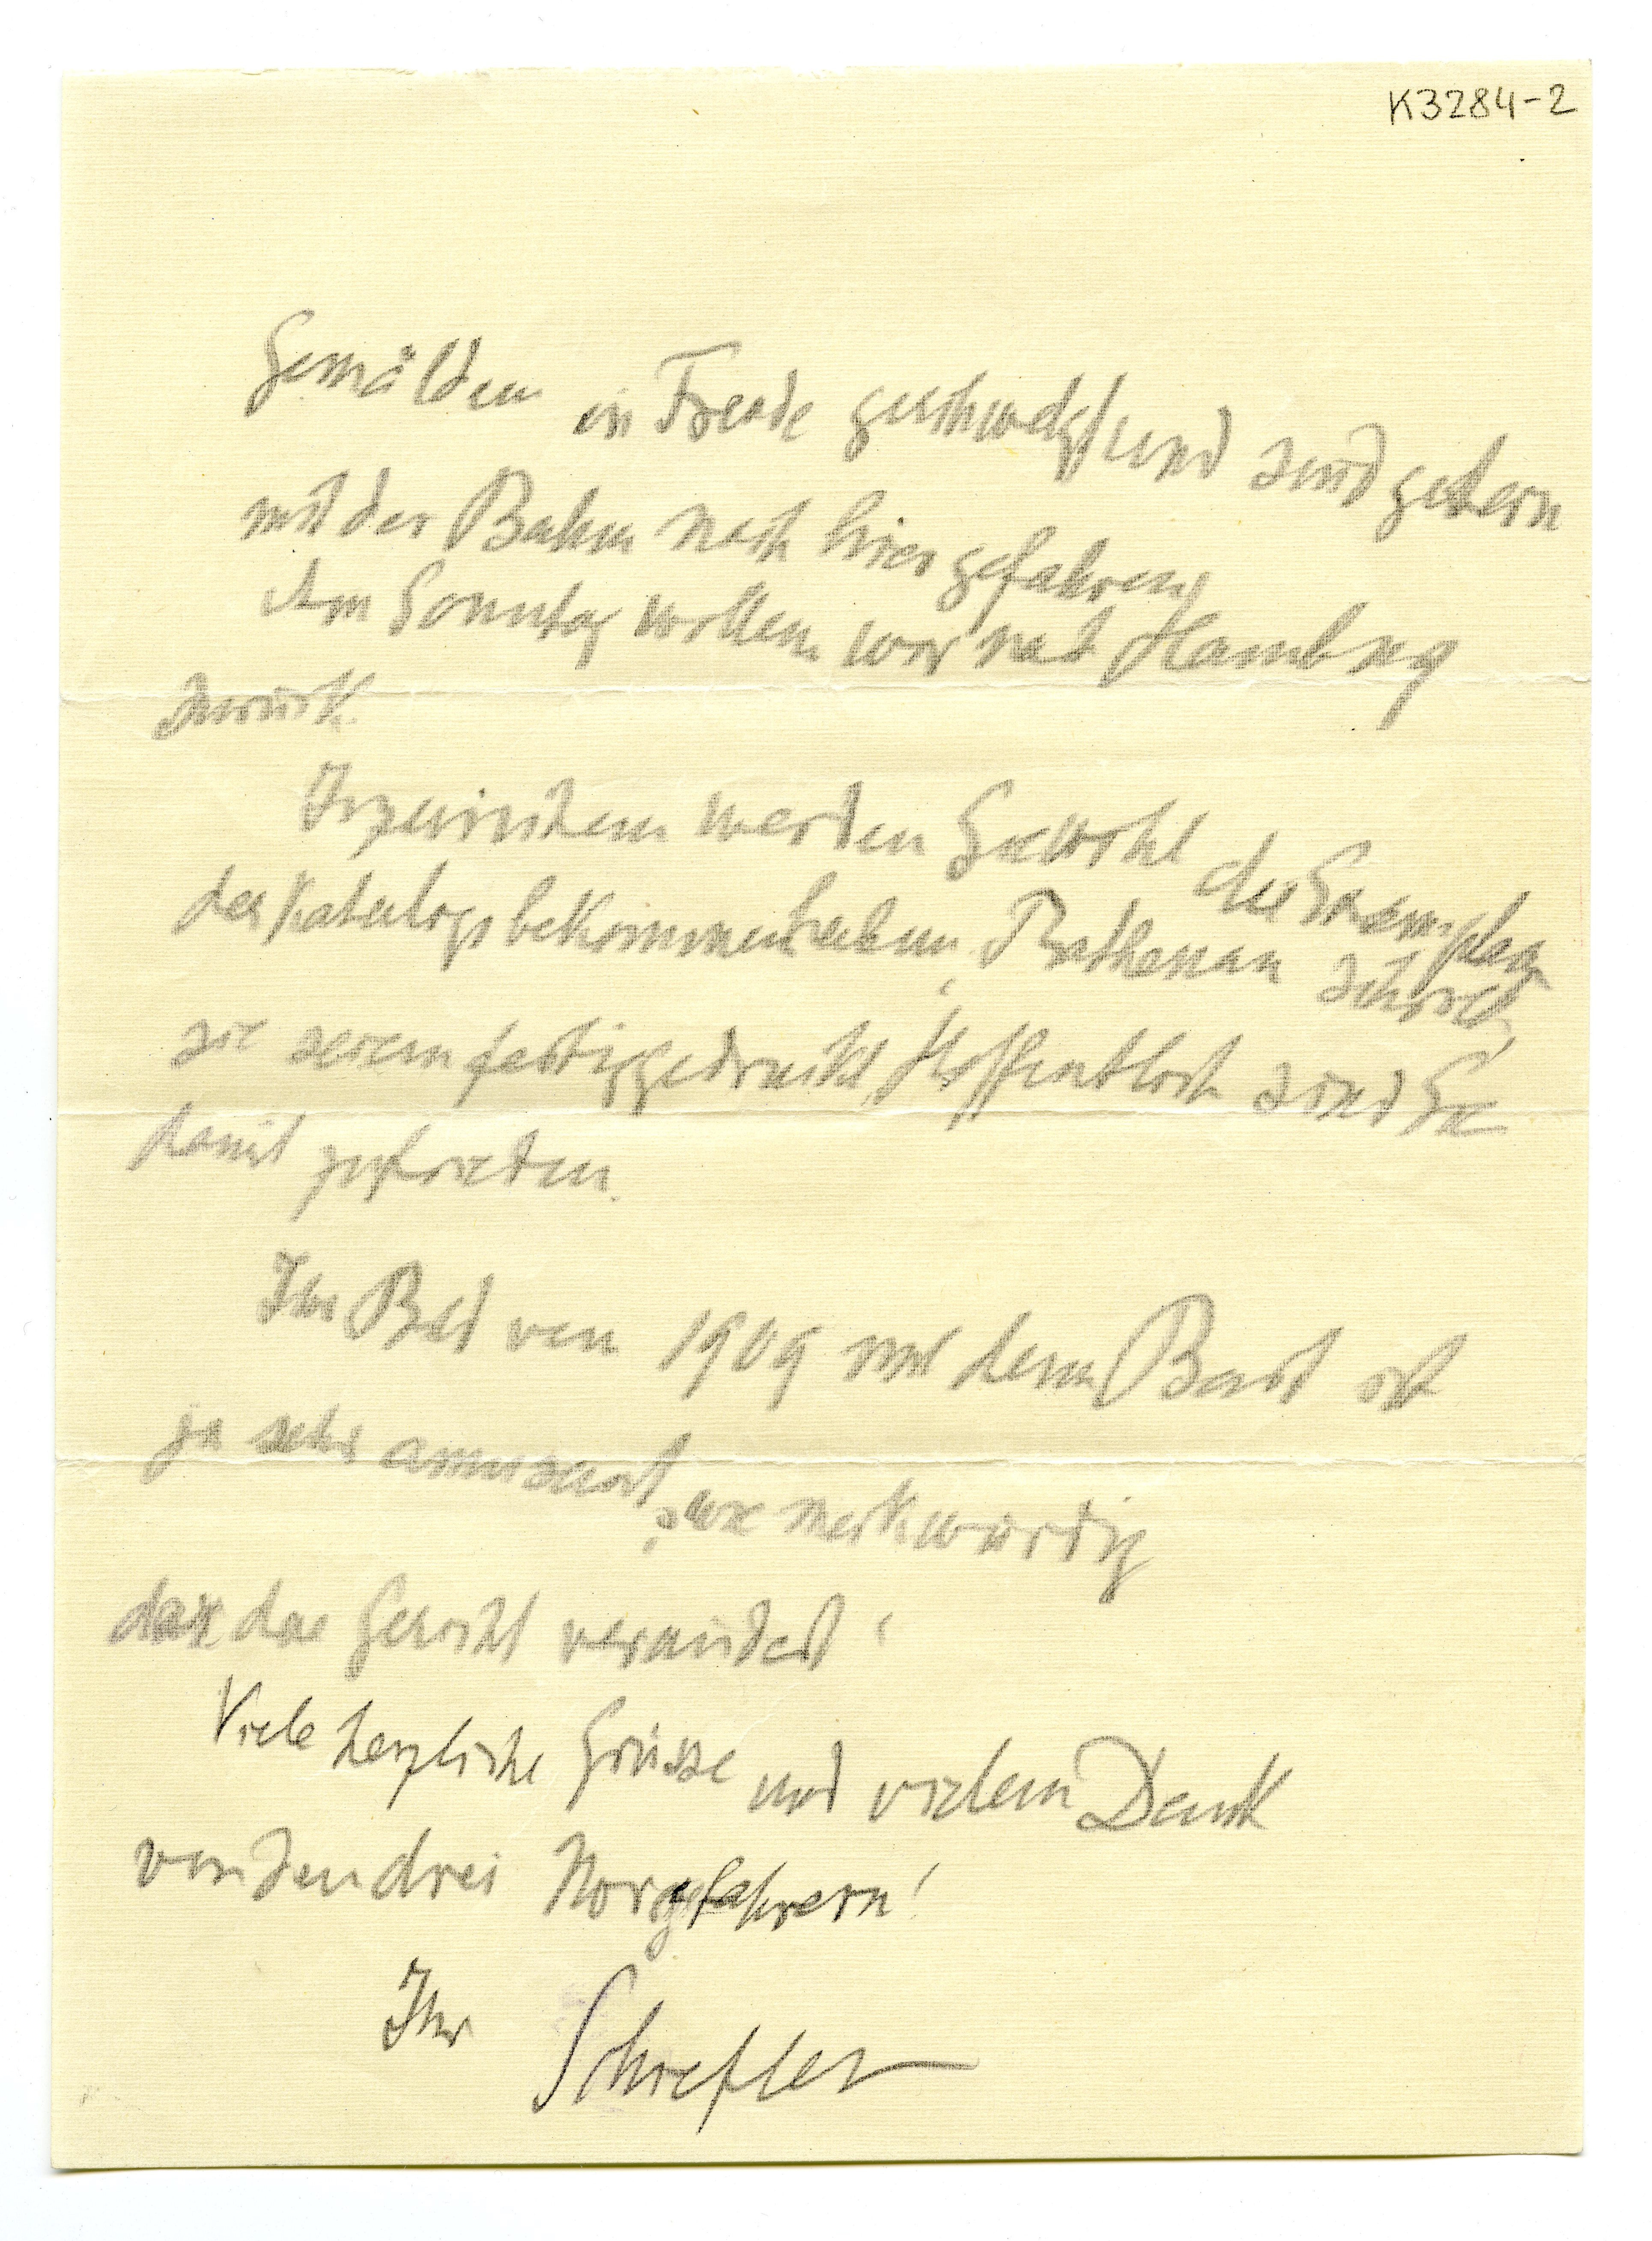 K3284-2
Gemälden in Freude geschwelgt und sind gestern
mit der Bahn nach hier gefahren
Am Sonntag wollen wir nach Hamburg
zurück.
Inzwischen werden Sie wohl die Exemplare
des Katalogs bekommen haben, Rathenau schrieb,
sie seien fertiggedruckt, Hoffentlich sind Sie
damit zufrieden.
Ihr Bild von 1909 mit dem Bart ist
ja sehr amüsant, wie merkwürdig
das das Gesicht verändert!
Viele herzliche Grüsse und vielen Dank
von den drei Norgefahrern!
Ihr Schiefler